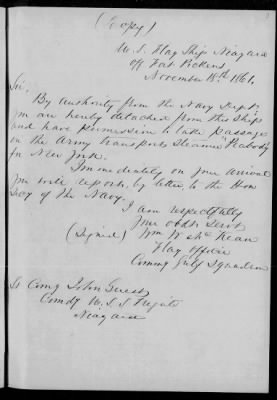 (Copy)
U. S. Flag Ship Niagara
Off Fort Pickens
November 18th 1861.
Sir,
By authority from the Navy Dept,
you are hereby detached from this Ship
and have permission to take passage
in the Army transport Steamer Peabody
for New York.
Immediately on your arrival
you will report, by letter, to the Hon
Secy of the Navy.
I am respectfully
your obdt Servt
(Signed) Wm W McKean
Flag Officer
Commg Gulf Squadron
Lt Comg John Guest
Comdg U. S. S. Frigate
Niagara